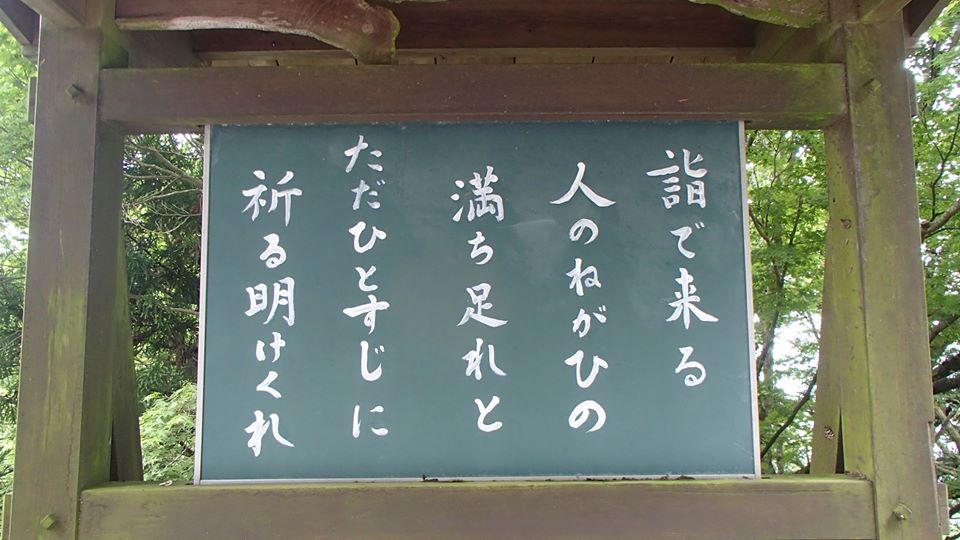 詣で来る
人のねがひの
満ち足れと
ただひとすじに
祈る明けくれ